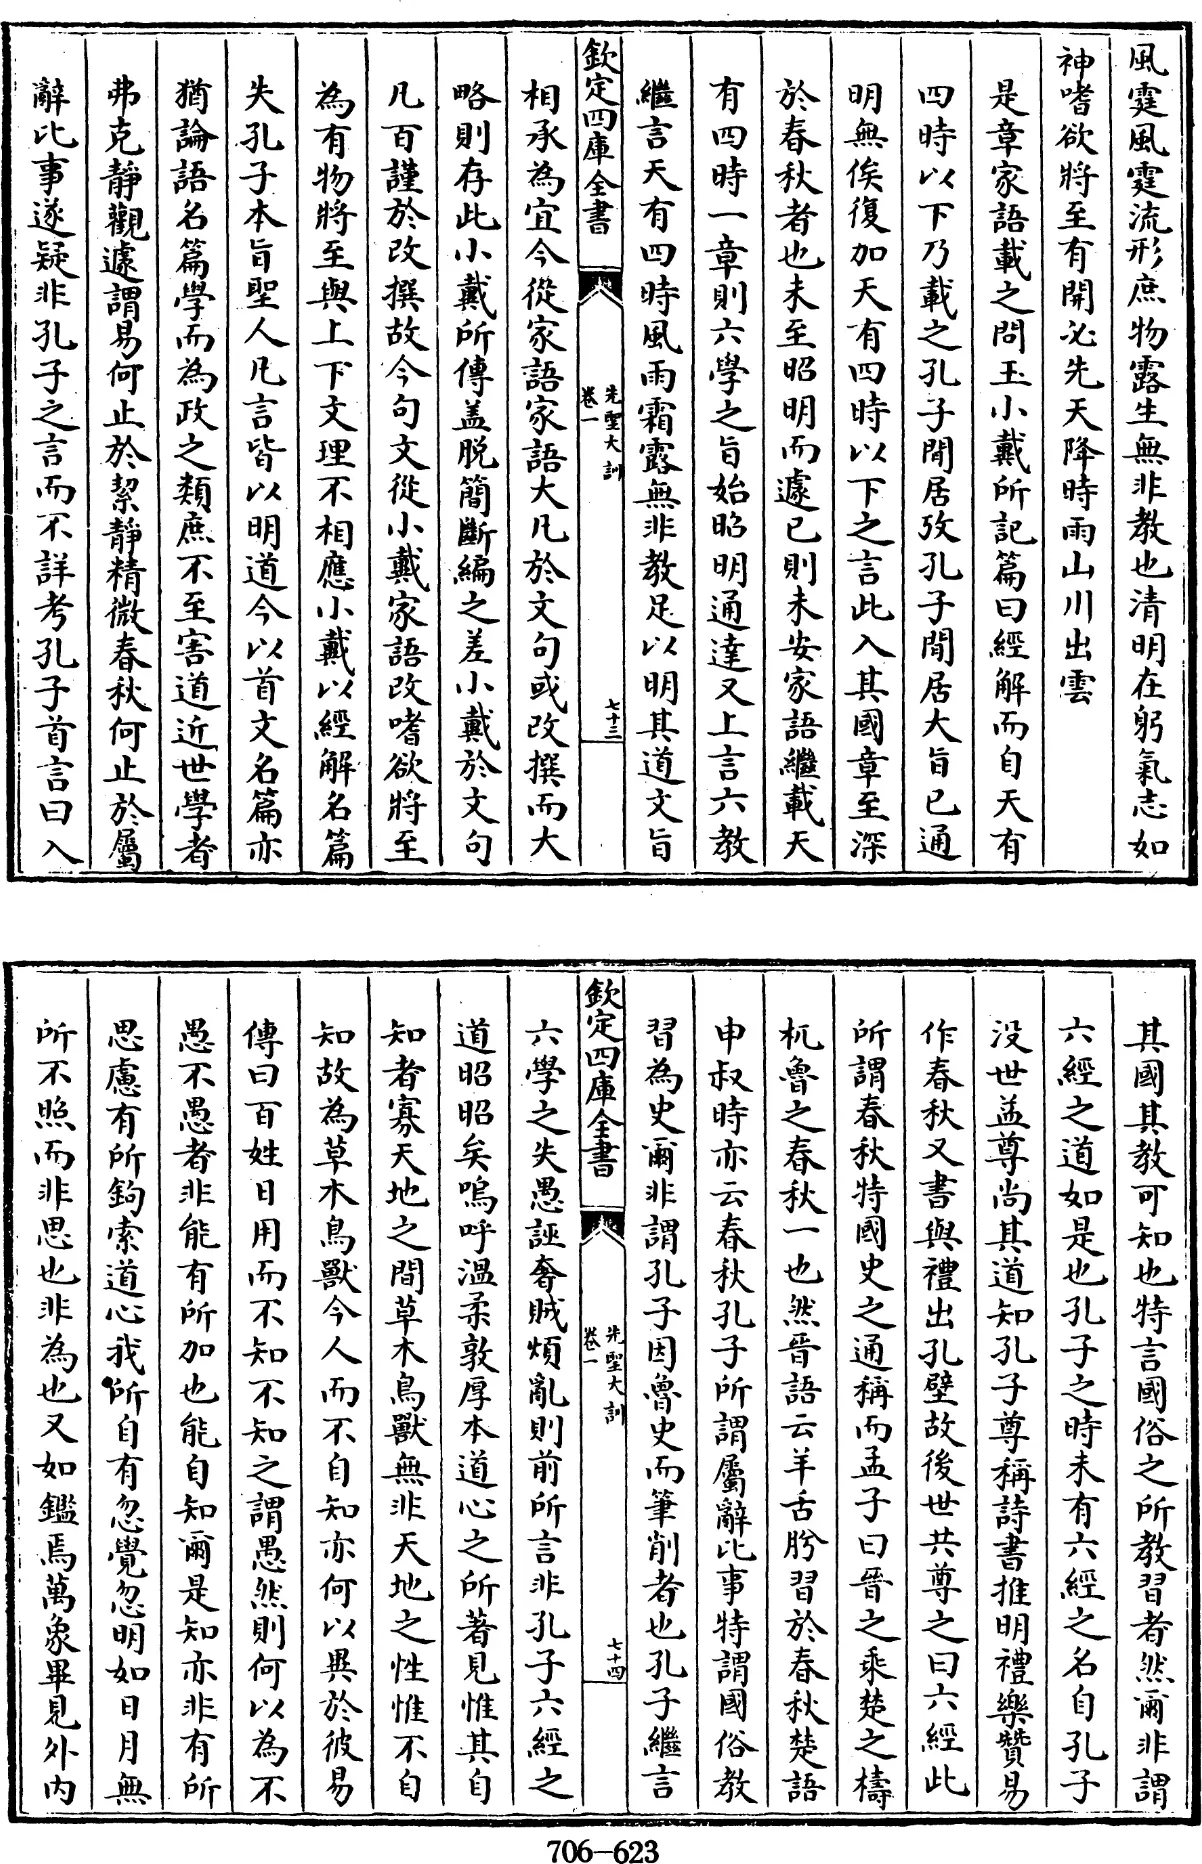 風霆風霆流形庶物露生無非教也清明在躬氣志如
神嗜欲將至有開必先天降時雨山川出雲
是章家語載之問玉小戴所記篇曰經解而自天有
四時以下乃載之孔子閒居攷孔子閒居大旨已通
明無俟復加天有四時以下之言此入其國章至深
於春秋者也未至昭明而遽已則未安家語繼載天
有四時一章則六學之旨始昭明通達又上言六教
繼言天有四時風雨霜露無非教足以明其道文旨
欽定四庫全書
先聖大訓
卷一
七十三
相承為宜今從家語家語大凡於文句或改撰而大
略則存此小戴所傳盖脱簡斷編之差小戴於文句
凡百謹於改撰故今句文從小戴家語改嗜欲將至
為有物將至與上下文理不相應小戴以經解名篇
失孔子本旨聖人凡言皆以明道今以首文名篇亦
猶論語名篇學而為政之類庶不至害道近世學者
弗克靜觀遽謂易何止於絜靜精微春秋何止於屬
辭比事遂疑非孔子之言而不詳考孔子首言曰入
其國其教可知也特言國俗之所教習者然爾非謂
六經之道如是也孔子之時未有六經之名自孔子
没世益尊尚其道知孔子尊稱詩書推明禮樂贊易
作春秋又書與禮出孔壁故後世共尊之曰六經此
所謂春秋特國史之通稱而孟子曰晉之乘楚之檮
杌魯之春秋一也然晉語云羊舌肸習於春秋楚語
申叔時亦云春秋孔子所謂屬辭比事特謂國俗教
習為史爾非謂孔子因魯史而筆削者也孔子繼言
欽定四庫全書
先聖大訓
卷一
七十四
六學之失愚誣奢賊煩亂則前所言非孔子六經之
道昭昭矣嗚呼溫柔敦厚本道心之所著見惟其自
知者寡天地之間草木鳥獸無非天地之性惟不自
知故為草木鳥獸今人而不自知亦何以異於彼易
傳曰百姓日用而不知不知之謂愚然則何以為不
愚不愚者非能有所加也能自知爾是知亦非有所
思慮有所鉤索道心我所自有忽覺忽明如日月無
所不照而非思也非為也又如鑑焉萬象畢見外内
706-623